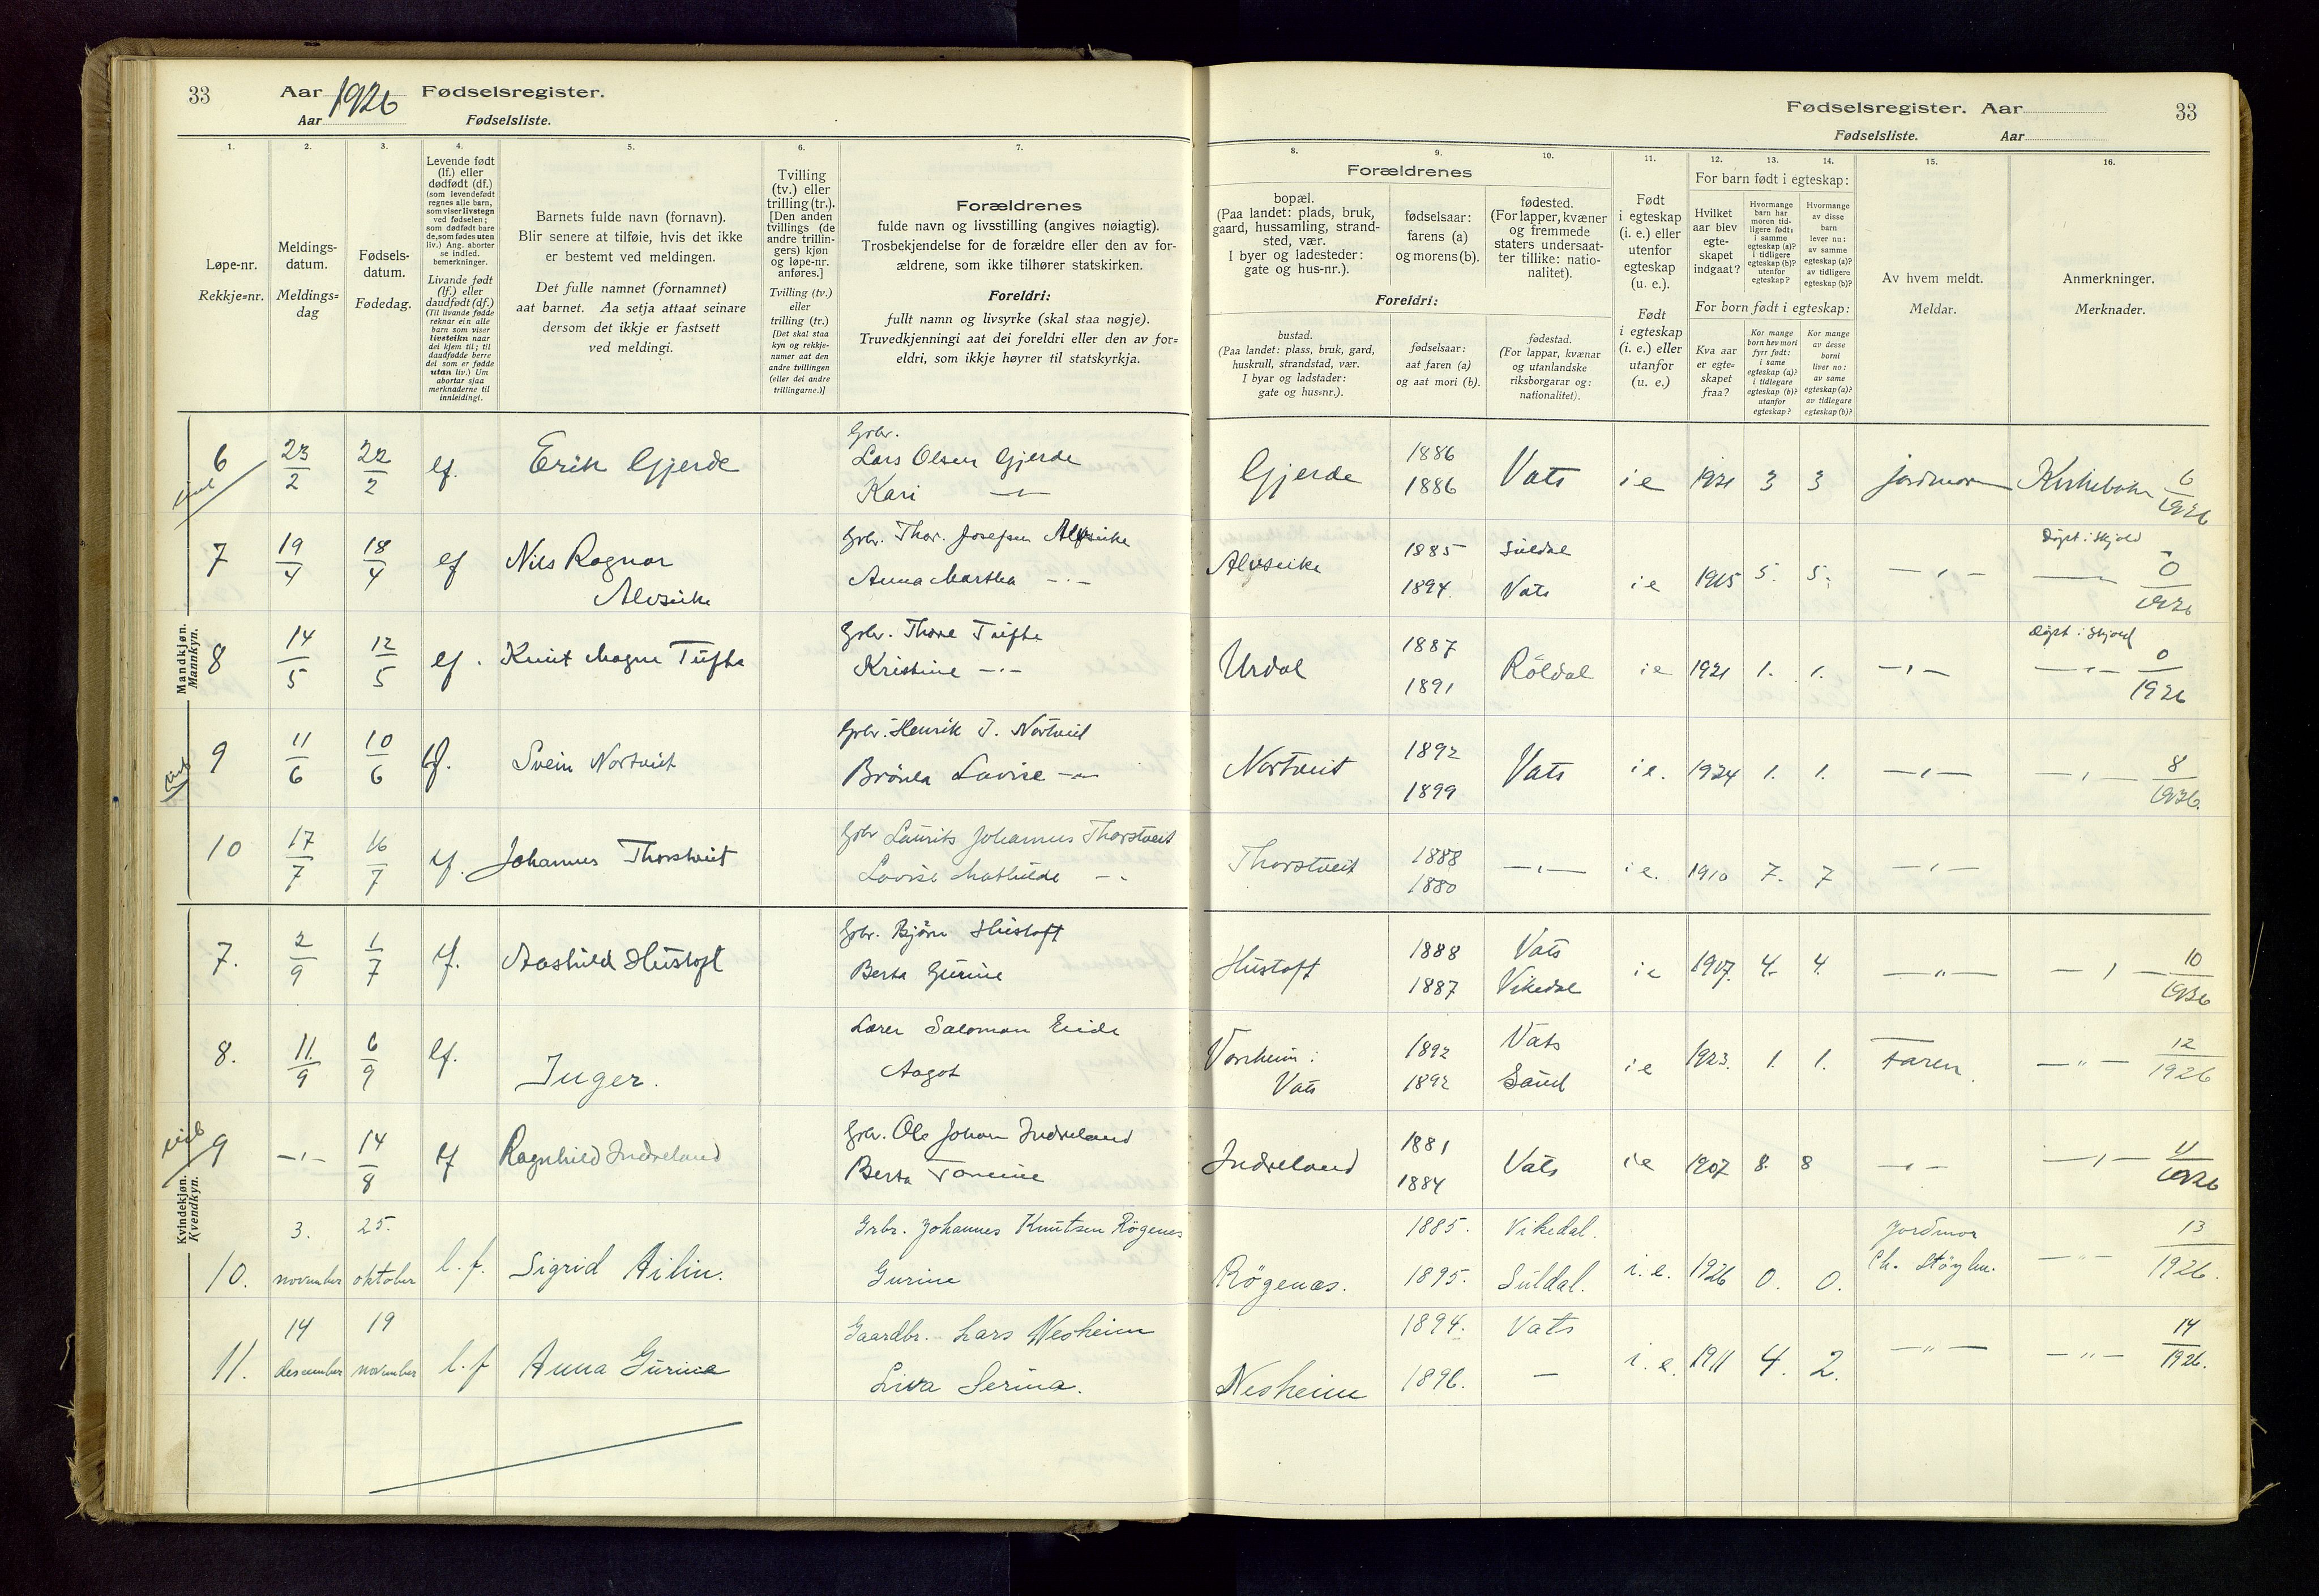 33 Aar 1926 Fødselsregister.
Aar Fødselsliste.
Fødselsregister. Aar 33
Fødselsliste. Aar
1. 2. 3. 4. 5. 6. 7. 8. 9. 10. 11. 12. 13. 14. 15. 16.
Løpe-nr.
Rekkje=nr.
Meldings-
datum.
Meldings=
dag
Fødsels-
datum.
Fødedag.
Levende født
(lf.) eller
dødfødt (df.)
(som levendefødt
regnes alle barn,
som viser livstegn
ved fødselen;
som dødfødt bare
de, som fødes uten
liv.) Ang. aborter
se indled.
bemerkninger.
Livande født
(lf.) eller
daudfødt (df.)
(Til livande fødde
reknar ein alle
barn som viser
livsteikn naar
dei kjem til; til
daudfødde berre
dei som er fødde
utan liv.) Um
abortar sjaa
merknaderne til
innleidingi.
Barnets fulde navn (fornavn).
Blir senere at tilføie, hvis det ikke
er bestemt ved meldingen.
Det fulle namnet (fornamnet)
aat barnet. Aa setja attaat seinare
dersom det ikkje er fastsett
ved meldingi.
Tvilling
(tv.) eller
trilling (tr.).
[Den anden
tvillings (de
andre trillin-
gers) kjøn
og løpe-nr.
anføres.]
Tvilling (tv.)
eller
trilling (tr.)
[Det skal staa
kyn og rekkje-
numer aat den
andre tvillingen
(eller dei andre
trillingarne.)]
Forældrenes
fulde navn og livsstilling (angives nøiagtig).
Trosbekjendelse for de forældre eller den av for-
ældrene, som ikke tilhører statskirken.
Foreldri:
fullt namn og livsyrke (skal staa nøgje).
Truvedkjenningi aat dei foreldri eller den av for-
eldri, som ikkje høyrer til statskyrkja.
Forældrenes
bopæl.
(Paa landet: plads, bruk,
gaard, hussamling, strand-
sted, vær.
I byer og ladesteder:
gate og hus-nr.).
fødselsaar:
farens (a)
og morens (b).
fødested.
(For lapper, kvæner
og fremmede
staters undersaat-
ter tillike: natio-
nalitet).
Foreldri:
bustad.
(Paa landet: plass, bruk, gard,
huskrull, strandstad, vær.
I byar og ladstader:
gate og hus=nr.).
fødselsaar:
aat faren (a)
og aat mori (b).
fødestad.
(For lappar, kvænar
og utanlandske
riksborgarar og:
nationalitet).
Født
i egteskap
(i. e.) eller
utenfor
egteskap
(u. e.).
Født
i egteskap
(i. e.) eller
utanfor
(u. e.)
For barn født i egteskap:
Hvilket
aar blev
egte-
skapet
indgaat?
Hvormange
barn har
moren tid-
ligere født:
i samme
egteskap (a)?
i tidligere
egteskap (b)?
utenfor
egteskap?
Hvormange
av disse
barn
lever nu:
av samme
egteskap (a)?
av tidligere
egteskap (b)?
For born født i egteskap:
Kva aar
er egte-
skapet
fraa?
Kor mange
born hev mori
fyrr født:
i same
egteskap (a)?
i tidlegare
egteskap (b)?
utanfor
egteskap?
Kor mange
av desse
borni
liver no:
av same
egteskap (a)?
av tidlegare
egteskap (b)?
Av hvem meldt.
Meldar.
Anmerkninger.
Merknader.
Mandkjøn.
Mannkyn.
6 23/2 22/2 lf. Erik Gjerde Grbr. Lars Olsen Gjerde Gjerde 1886 Vats i e 1921 3 3 jordmor Kirkebokn 6/1926
Kari —"— 1886
7 19/4 18/4 lf Nils Ragnar Grbr. Thor. Josefsen Alvseike Alvseike 1885 Suldal i e 1915 5. 5. —"— Døpt i Skjold 0/1926
Alvseike Anna Martha —"— 1894. Vats
8 14/5 12/5 lf. Knut Magne Tufte Grbr. Thore Tufte Urdal 1887 Røldal i e 1921 1. 1. —"— Døpt i Skjold 0/1926
Kristine —"— 1891
9 11/6 10/6 lf. Svein Nortveit Grbr. Henrik J. Nortveit Nortveit 1892 Vats i e. 1924 1. 1. —"— —"— 8/1926.
Lovise —"— 1899
10 17/7 16/7 lf. Johannes Thorstveit Grbr Laurits Johannes Thorstveit Thorstveit 1888 —"— i e. 1910 7. 7 —"—
Lovise Mathilde —"— 1880
Kvindekjøn.
Kvendkyn.
7. 2/9 1/7 lf. Aashild Hustoft Grbr. Bjørn Hustoft Hustoft 1888 Vats i e 1917. 4. 4. —"— —"— 10/1926
Berta Gurine 1887 Vikedal
8. 11./9 6/9 lf. Inger. Lærer Salomon Eside 1892 Vats i e 1923. 1. 1. Faren. —"— 12/1926
Aagot Vats 1892 Sand
9 —"— 14/8 lf Ragnhild Indreland Grbr. Ole Johan Indreland Indreland 1881 Vats i e 1907 8. 8 —"— —"— 11/1926
Berta Tomine 1884
10. 3. november 25. oktober l. f. Sigrid Ailin. Grbr. Johannes Knutsen Røgenes Røgenæs. 1885. Vikedal. i. e. 1926 0. 0. Jordmor —"— 13/1926.
Gurine 1895. Suldal.
11. 14 desember 19 november l. f Anna Gurina Gaardbr. Lars Nesheim Nesheim 1894. Vats i. e. 1911 4. 2. —"— —"— 14/1926.
Liva Serina. 1896. —